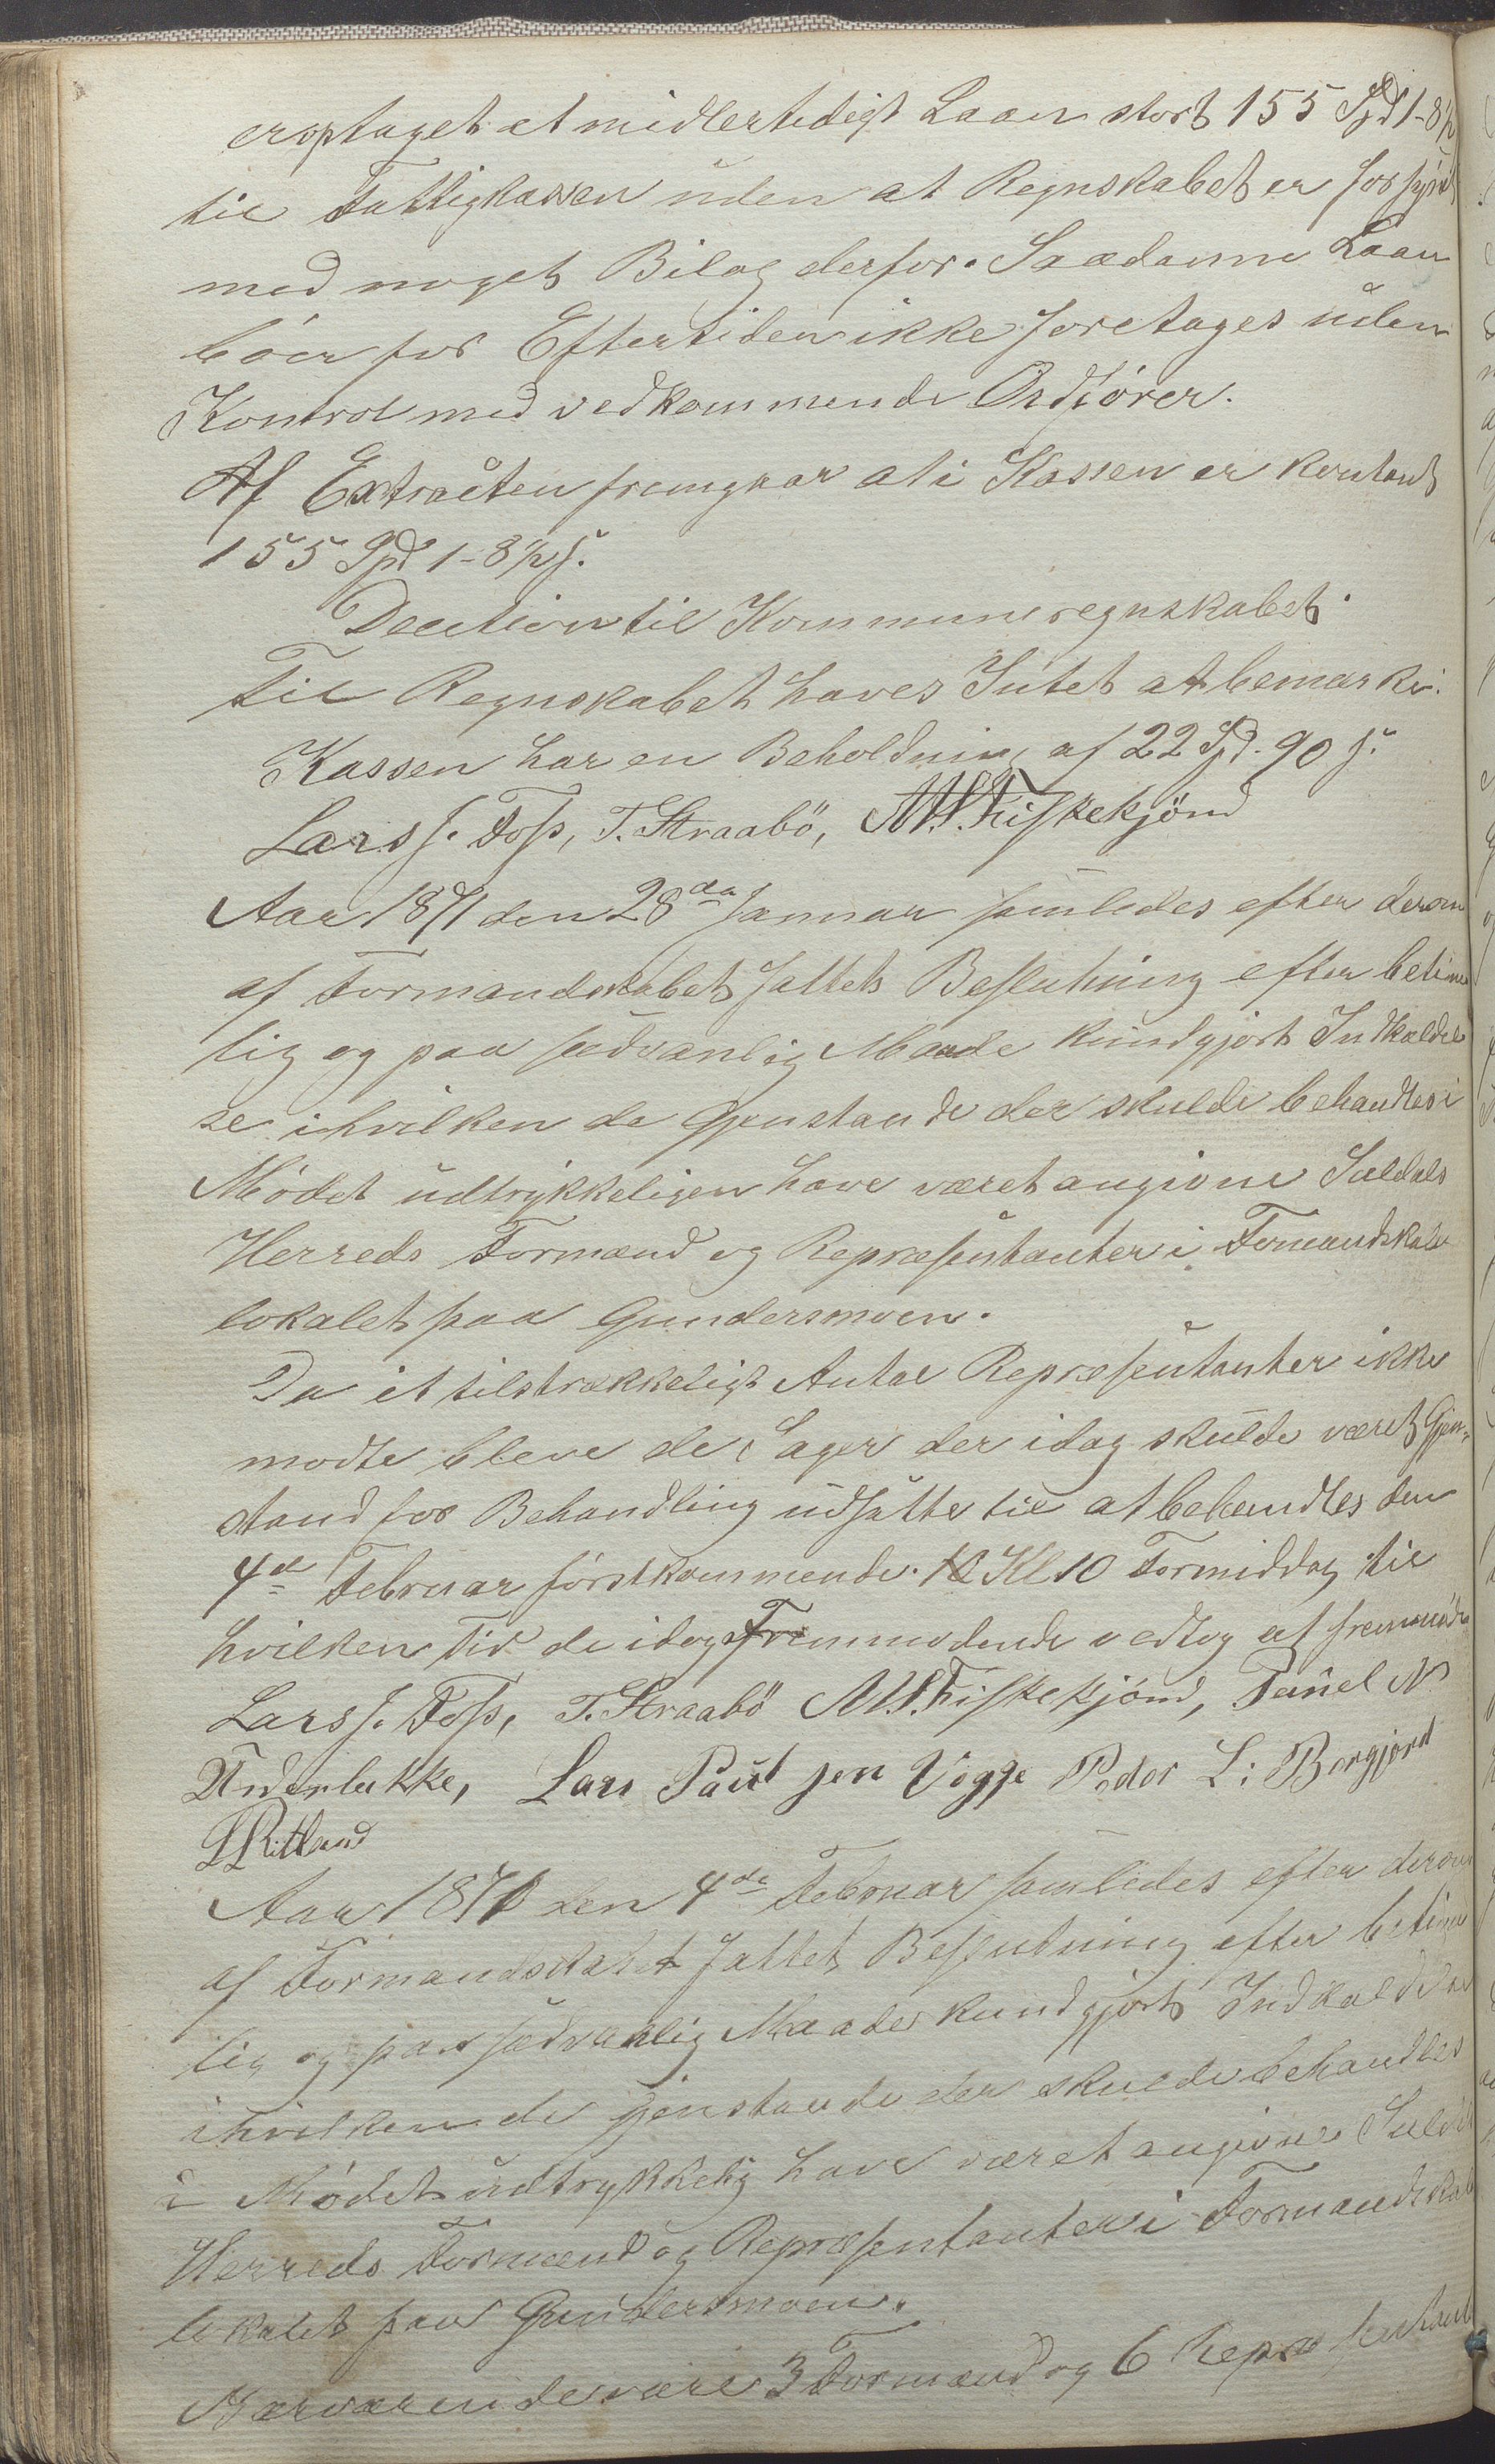 er optaget et midlertidigt Laan stort 155 Spd 1-8½
til Fattigkassen uden at Regnskabet er forsynet
med noget Bilag derfor. Saadanne Laan
bóer for Eftertiden ikke foretages uden
Kontrol med vedkommende Ordfórer.
Af Extracten fremgaar at i Kassen er kontant
155 Spd 1-8½ s.
Decition til Kommuneregnskabet.
Til Regnskabet haves Intet at bemærke.
Kassen har en Beholdning af 22 Spd. 90 s.
Lars J. Foss, T. Straabö, M.S. Fiskekjönd
Aar 1871 den 28de Januar samledes efter derom
af Formandskabet fattet Beslutning efter betime
lig og paa sædvanlig Maade kundgjort Indkaldel
se i hvilken de Gjenstande der skulde behandles i
Módet udtrykkeligen have været angivne Suldals
Herreds Formænd og Repræsentanter i Formandskabs
lokalet paa Gundersmoen.
Da et tilstrækkeligt Antal Repræsentanter ikke
modte bleve de Sager der idag skulde været Gjen-
stand for Behandling udsatte til at behandles den
4de Februar fórstkommende Kl 10 Formiddag til
hvilken Tid de idag Fremmodende vedtog at fremmóde
Lars J. Foss, T. Straabö M.S. Fiskekjónd, Paûel N
Underbakke, Lars Paul sen Vigge Peder L: Bergjord
L Ritland
Aar 1871 den 4de Februar samledes efter derom
af Formandskabet fattet Beslutning efter betime
lig og paa sædvanlig Maade kundgjort Indkaldelse
i hvilken de Gjenstande der skulde behandles
i Módet udtrykkelig have været angivne Suldals
Herreds Formænd og Repræsentanter i Formandskabs
lokalet paa Gundersmoen.
Nærværende vare 3 Formænd og 6 Repræsentant